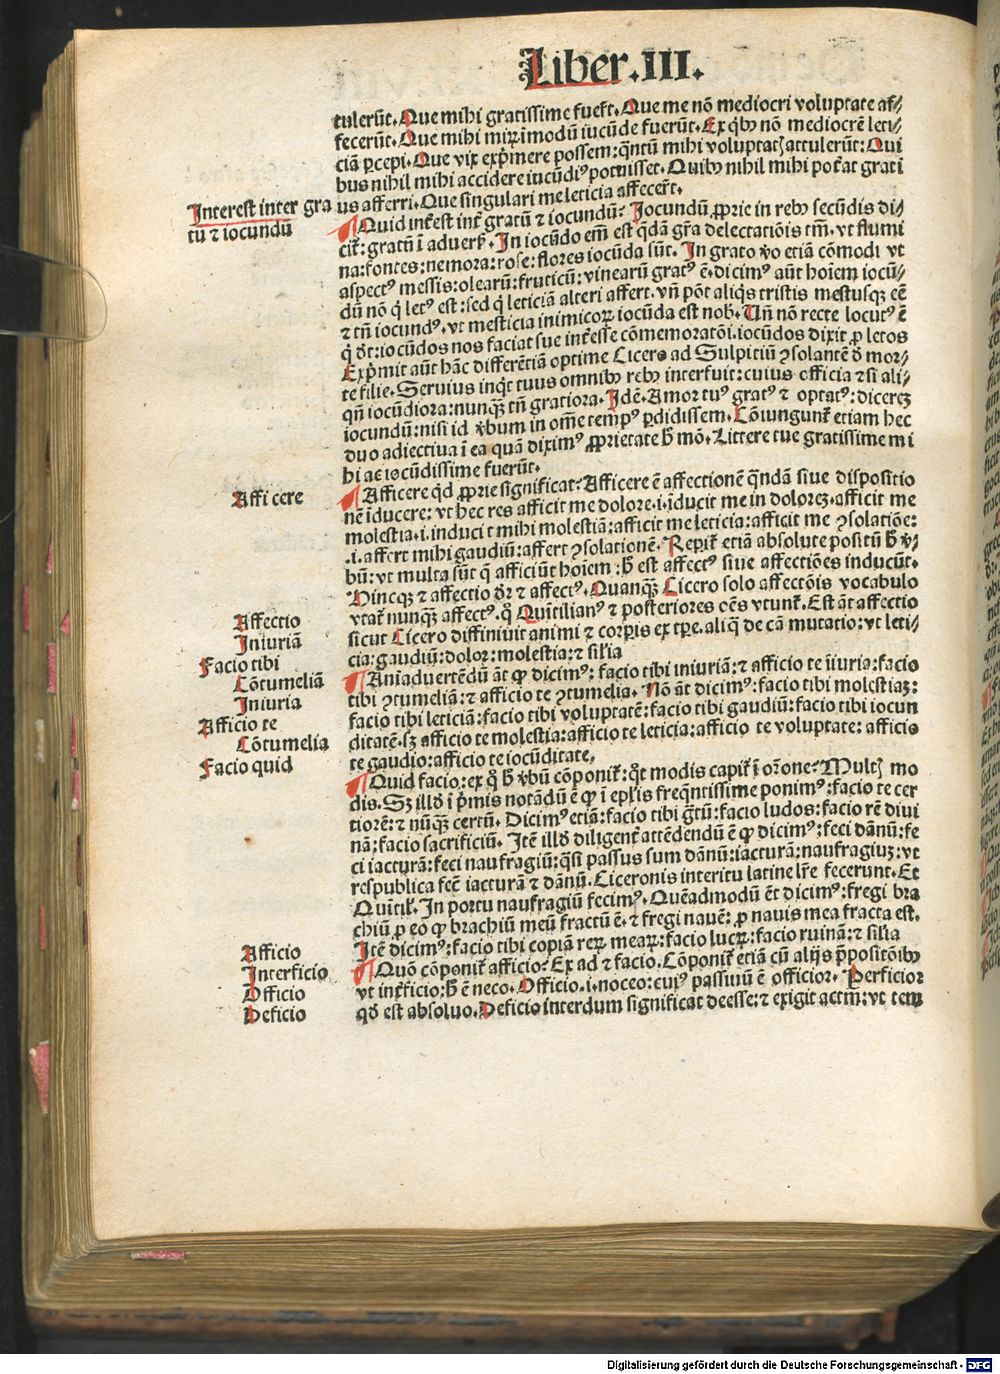 Liber.III.
tulerūt. Que mihi gratissime fuerūt. Que me nō mediocri voluptate af-
fecerūt. Que mihi mirꝝimodū iucūde fuerūt. Ex qb9 nō mediocrē leti-
ciā ꝑcepi. Que vix exp̄mere possem: q̄ntū mihi voluptatꝭ attulerūt: Qui
bus nihil mihi accidere iucūdi9 potuisset. Quib9 nihil mihi pot̄at grati
us afferri. Que singulari me leticia affecer̄t.
Interest inter gra
tū ⁊ iocundū
Quid int̄est int̄ gratū ⁊ iocundū? Jocundū ꝓprie in reb9 secūdis di-
cit̄: gratū ī aduers̄. In iocūdo em̄ est q̄dā gr̄a delectatiōis tm̄. vt flumi
na: fontes: nemora: rose: flores iocūda sūt. In grato v̄o etiā cōmodi vt
aspect9 messis: olearū: fruticū: vinearū grat9 ē. dicim9 aūt hoīem iocū-
dū nō q̄ let9 est: sed q̄ leticiā alteri affert. vn̄ pōt aliq̄s tristis mestusqꝫ eē
⁊ tn̄ iocund9. vt mesticia inimicoꝝ iocūda est nob̄. Un̄ nō recte locut9 ē
q̄ dr̄: iocūdos nos faciat sue int̄esse cōmemoratōi. iocūdos dixit ꝓ letos
Exp̄mit aūt hāc differētiā optime Cicero ad Sulpitiū ↄsolantē d̄ mor-
te filie. Seruius inq̄t tuus omnib9 reb9 interfuit: cuius officia ⁊ si ali-
qn̄ iocūdiora: nunqꝫ tn̄ gratiora. Idē. Amor tu9 grat9 ⁊ optat9: dicereꝫ
iocundū: nisi id v̄bum in om̄e temp9 ꝑdidissem. Cōiungunt̄ etiam hec
duo adiectiua ī ea quā dixim9 ꝓprietate h̄ mō. Littere tue gratissime mi
hi ac iocūdissime fuerūt.
Affi cere
Afficere qd̄ ꝓprie significat? Afficere ē affectionē q̄ndā siue dispositio
nē īducere: vt hec res afficit me dolore. i. īducit me in doloreꝫ. afficit me
molestia. i. induci t mihi molestiā: afficit me leticia: afficit me ↄsolatiōe:
.i. affert mihi gaudiū: affert ↄsolationē. Reꝑit̄ etiā absolute positū h̄ v̄-
bū: vt multa sūt q̄ afficiūt hoīem: h̄ est affect9 siue affectiōes inducūt.
Hincqꝫ ⁊ affectio dr̄ ⁊ affect9. Quanqꝫ Cicero solo affectōis vocabulo
vtat̄ nunqꝫ affect9. q̄ Quītilian9 ⁊ posteriores oēs vtunt̄. Est āt affectio
sicut Cicero diffiniuit animi ⁊ corꝑis ex tꝑe. aliq̄ de cā mutatio: vt leti-
cia: gaudiū: dolor: molestia: ⁊ sil̄ia
Affectio
Iniuriā
Facio tibi
Cōtumeliā
Iniuria
Afficio te
Cōtumelia
Facio quid
Aniaduertēdū āt ꝙ dicim9: facio tibi iniuriā: ⁊ afficio te īiuria: facio
tibi ↄtumeliā: ⁊ afficio te ↄtumelia. Nō āt dicim9: facio tibi molestiaꝫ:
facio tibi leticiā: facio tibi voluptatē: facio tibi gaudiū: facio tibi iocun
ditatē. sꝫ afficio te molestia: afficio te leticia: afficio te voluptate: afficio
te gaudio: afficio te iocūditate.
Quid facio: ex q̄ h̄ v̄bū cōponit̄: q̄t modis capit̄ ī or̄one? Multꝭ mo
dis. Sꝫ illd̄ ī p̄mis notādū ē ꝙ ī ep̄lis freq̄ntissime ponim9: facio te cer
tiorē: ⁊ nūqꝫ certū. Dicim9 etiā: facio tibi gr̄tū: facio ludos: facio rē diui
nā: facio sacrificiū. Itē illd̄ diligent̄ attēdendū ē ꝙ dicim9: feci dānū: fe
ci iacturā: feci naufragiū: q̄si passus sum dānū: iacturā: naufragiuꝫ: vt
respublica fec̄ iacturā ⁊ dānū. Ciceronis interitu latine lr̄e fecerunt. Et
Quītil̄. In portu naufragiū fecim9. Quēadmodū ēt dicim9: fregi bra
chiū ꝓ eo ꝙ brachiū meū fractū ē. ⁊ fregi nauē: ꝓ nauis mea fracta est.
Itē dicim9: facio tibi copiā reꝝ meaꝝ: facio lucꝝ: facio ruinā: ⁊ sil̄ia
Afficio
Interficio
Officio
Deficio
Quō cōponit̄ afficio? Ex ad ⁊ facio. Cōponit̄ etiā cū alijs p̄positōib9
vt int̄ficio: h̄ ē neco. Officio. i. noceo: cui9 passiuū ē officior. Perficior
qd̄ est absoluo. Deficio interdum significat deesse: ⁊ exigit actm̄: vt tem
Digitalisierung gefördert durch die Deutsche Forschungsgemeinschaft - DFG